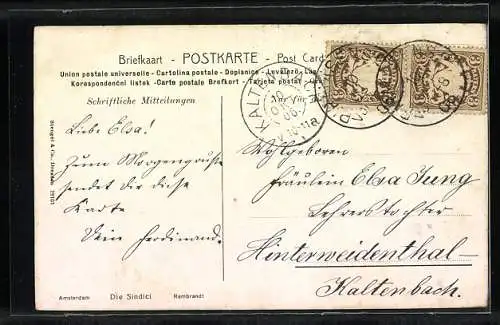 Briefkaart - POSTKARTE - Post Card
Union postale universelle - Cartolina postale - Dopisnice - Levelező-Lap
Korespondenční lístek -Carte postale Brefkort - Tarjeta postal
Schriftliche Mitteilungen
Nur für
KALTENBACH
Liebe Elsa!
Zum Morgengruße
sendet dir diese
Karte
Dein Ferdinand.
Wohlgeboren
Fräulein Elsa Jung
Lehrerstochter
Hinterweidenthal-
Kaltenbach.
Stengel & Co., Dresden
Amsterdam Die Sindici Rembrandt